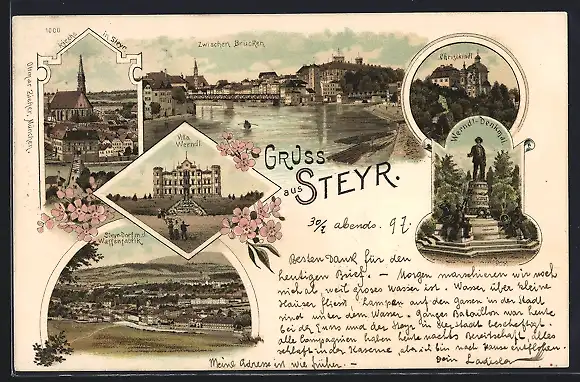 1000
Kirche in Steyr.
Zwischen Brücken.
Christkindl
Ottmar Zieher, München.
Villa
Werndl
Werndl-Denkmal.
GRUSS
aus STEYR.
Steyr-Dorf mit
Waffenfabrik.
30/7 abends. 97.
Besten Dank für den
heutigen Brief. – Morgen marschieren wir noch
nicht ab, weil groses Wasser ist. Wasser über kleine
Häuser fliest. Lampen auf den gasen in der Stadt
sind unter dem Wasser. – Ganzes Bataillon war heute
bei der Enns und der Steyr in der Stadt bescheftigt.
alle Compagnien haben heute nachts Bereitschaft, alles
schlaft in der Kaserne, aber ich bin nach Hause entflohen.
Meine Adresse ist wie früher. – Dein Ladislav